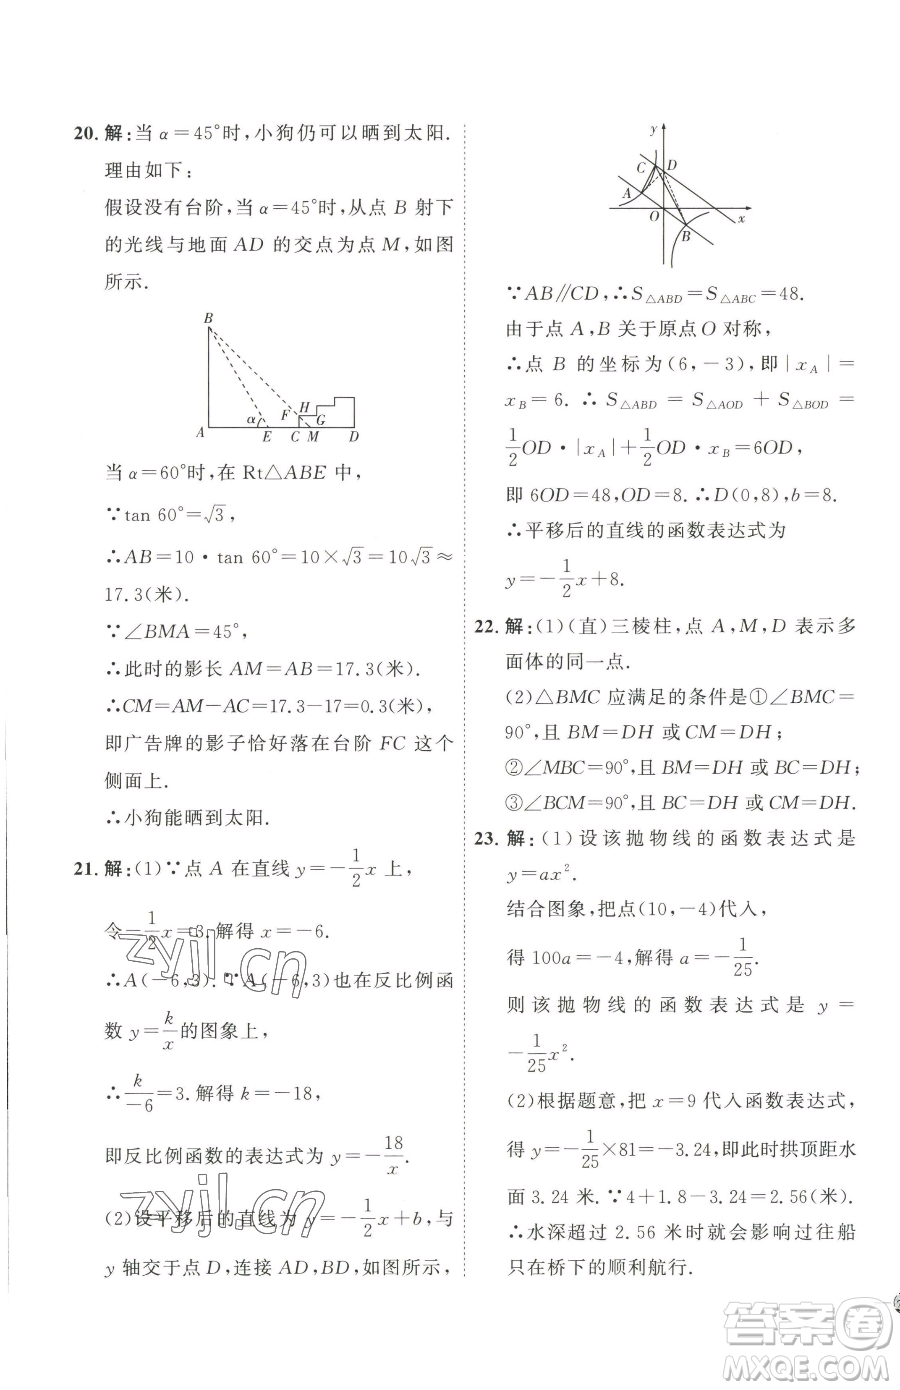 20. 解:当 α=45°时,小狗仍可以晒到太阳.
理由如下:
假设没有台阶,当 α=45°时,从点 B 射下
的光线与地面 AD 的交点为点 M,如图
所示.
B
F H G
α
A E C M D
当 α=60°时,在 Rt△ABE 中,
∵tan 60°=√3,
∴AB=10·tan 60°=10×√3=10√3≈
17.3(米).
∵∠BMA=45°,
∴此时的影长 AM=AB=17.3(米).
∴CM=AM-AC=17.3-17=0.3(米),
即广告牌的影子恰好落在台阶 FC 这个
侧面上.
∴小狗能晒到太阳.
21. 解:(1)∵点 A 在直线 y=-1/2x 上,
令-1/2x=3.解得 x=-6.
∴A(-6,3).∵A(-6,3)也在反比例函
数 y=k/x的图象上,
∴k/-6=3.解得 k=-18,
即反比例函数的表达式为 y=-18/x.
(2)设平移后的直线为 y=-1/2x+b,与
y 轴交于点 D,连接 AD,BD,如图所示,
y
C D
A
O x
B
∵AB∥CD,∴S△ABD=S△ABC=48.
由于点 A,B 关于原点 O 对称,
∴点 B 的坐标为(6,-3),即|xA|=
xB=6.∴S△ABD=S△AOD+S△BOD=
1/2OD·|xA|+1/2OD·xB=6OD,
即 6OD=48,OD=8.∴D(0,8),b=8.
∴平移后的直线的函数表达式为
y=-1/2x+8.
22. 解:(1)(直)三棱柱,点 A,M,D 表示多
面体的同一点.
(2)△BMC 应满足的条件是①∠BMC=
90°,且 BM=DH 或 CM=DH;
②∠MBC=90°,且 BM=DH 或 BC=DH;
③∠BCM=90°,且 BC=DH 或 CM=DH.
23. 解:(1)设该抛物线的函数表达式是
y=ax².
结合图象,把点(10,-4)代入,
得 100a=-4,解得 a=-1/25.
则该抛物线的函数表达式是 y=
-1/25x².
(2)根据题意,把 x=9 代入函数表达式,
得 y=-1/25×81=-3.24,即此时拱顶距水
面 3.24 米.∵4+1.8-3.24=2.56(米),
∴水深超过 2.56 米时就会影响过往船
只在桥下的顺利航行.
zyjl.cn
zyjl.cn
答案圈
MXQE.COM